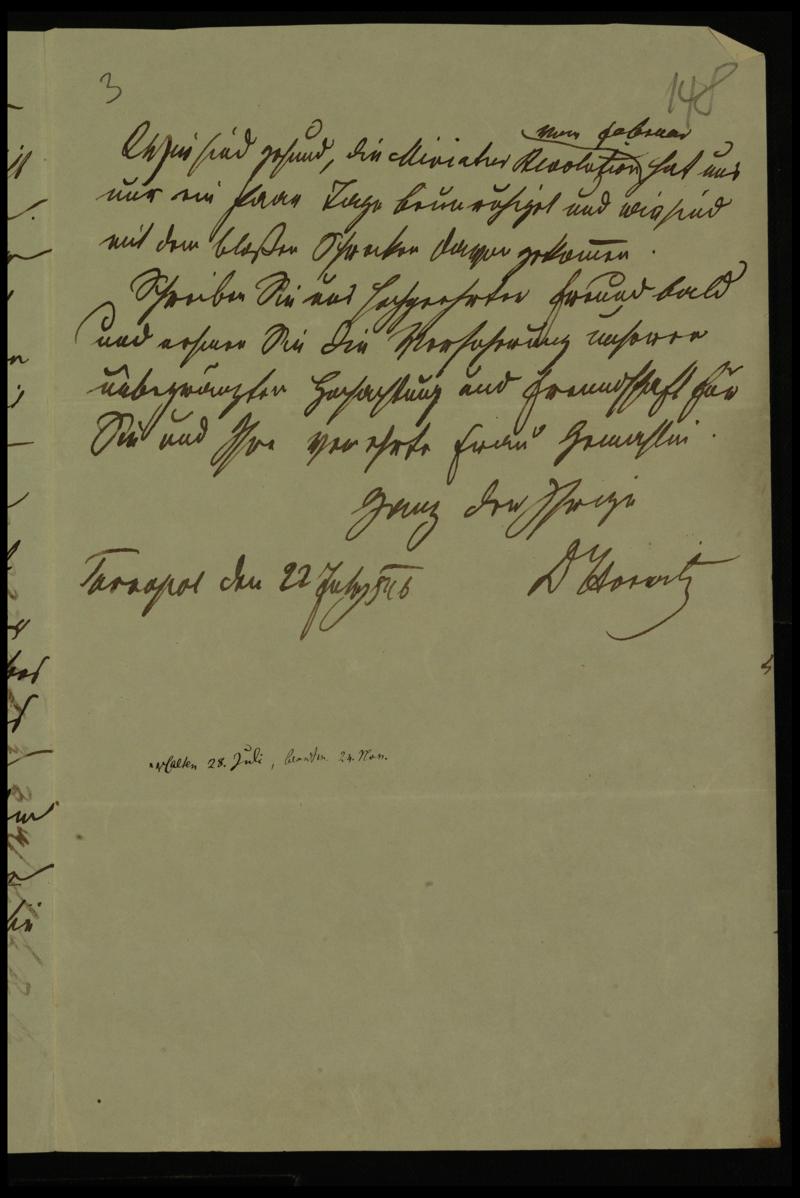 3
148
vom Februar
Wir sind gesund, die Miniatur Revolution hat uns
nur ein paar Tage beunruhiget und wir sind
mit dem bloßen Schrecken davon gekommen.
Schreiben Sie uns hochgeehrter Freund bald
und nehmen Sie die Versicherung unserer
unbegränzten Hochachtung und Freundschaft für
Sie und Ihre verehrte Frau Gemahlin.
Ganz der Ihrige
Tarnopol den 22 July 846
D Horwitz
erhalten 28. Juli, beantw. 24. Nov.